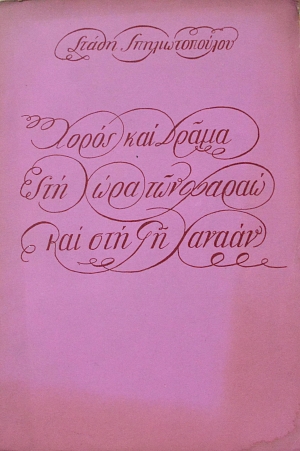 Στάθη Σπηλιωτοπούλου
Χορός καί Δρᾶμα
Στή Χώρα τῶν Φαραώ
καί στή Γῆ Χαναάν